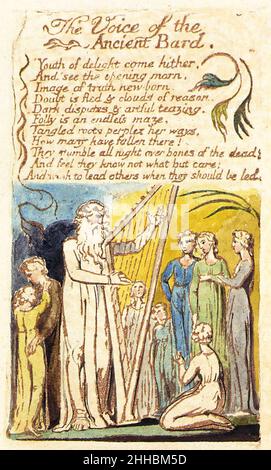 The Voice of the
Ancient Bard.
Youth of delight come hither,
And see the opening morn,
Image of truth new born.
Doubt is fled & clouds of reason.
Dark disputes & artful teazing.
Folly is an endleſs maze,
Tangled roots perplex her ways,
How many have fallen there!
They stumble all night over bones of the dead;
And feel they know not what but care;
And wish to lead others when they should be led.
alamy
Image ID: 2HHBM5D
www.alamy.com